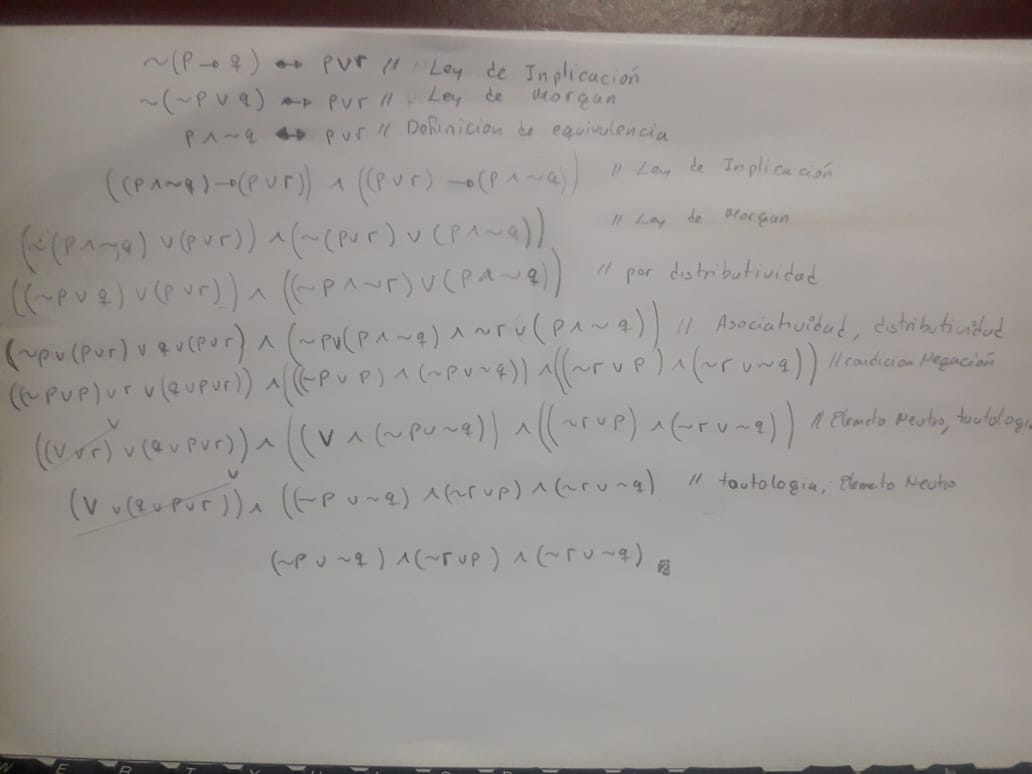 ~(p → q) ↔ p∨r // Ley de Inplicación
~(~p ∨ q) ↔ p∨r // Ley de Morgan
p ∧ ~q ↔ p∨r // Definicion de equivalencia
((p∧~q)→(p∨r)) ∧ ((p∨r) →(p∧~q)) // Ley de Inplicación
(~(p∧~q) ∨(p∨r)) ∧(~(p∨r) ∨ (p∧~q)) // Ley de Morgan
((~p∨q) ∨(p∨r)) ∧ ((~p∧~r)∨(p∧~q)) // por distributividad
(~p∨(p∨r) ∨ q∨(p∨r) ∧ (~p∨(p∧~q) ∧ ~r∨(p∧~q)) // Asociatividad, distributividad
((~p∨p)∨r ∨(q∨p∨r)) ∧((~p∨p) ∧ (~p∨~q)) ∧((~r∨p) ∧(~r∨~q)) // condicion Negación
((V∨r) ∨(q∨p∨r)) ∧ ((V ∧(~p∨~q)) ∧((~r∨p) ∧(~r∨~q)) // Elemeto Neutro, tautologi
V
(V ∨(q∨p∨r)) ∧ ((~p∨~q) ∧(~r∨p) ∧(~r∨~q) // tautologia, Elemeto Neutro
V
(~p∨~q) ∧(~r∨p) ∧ (~r∨~q)
W E R